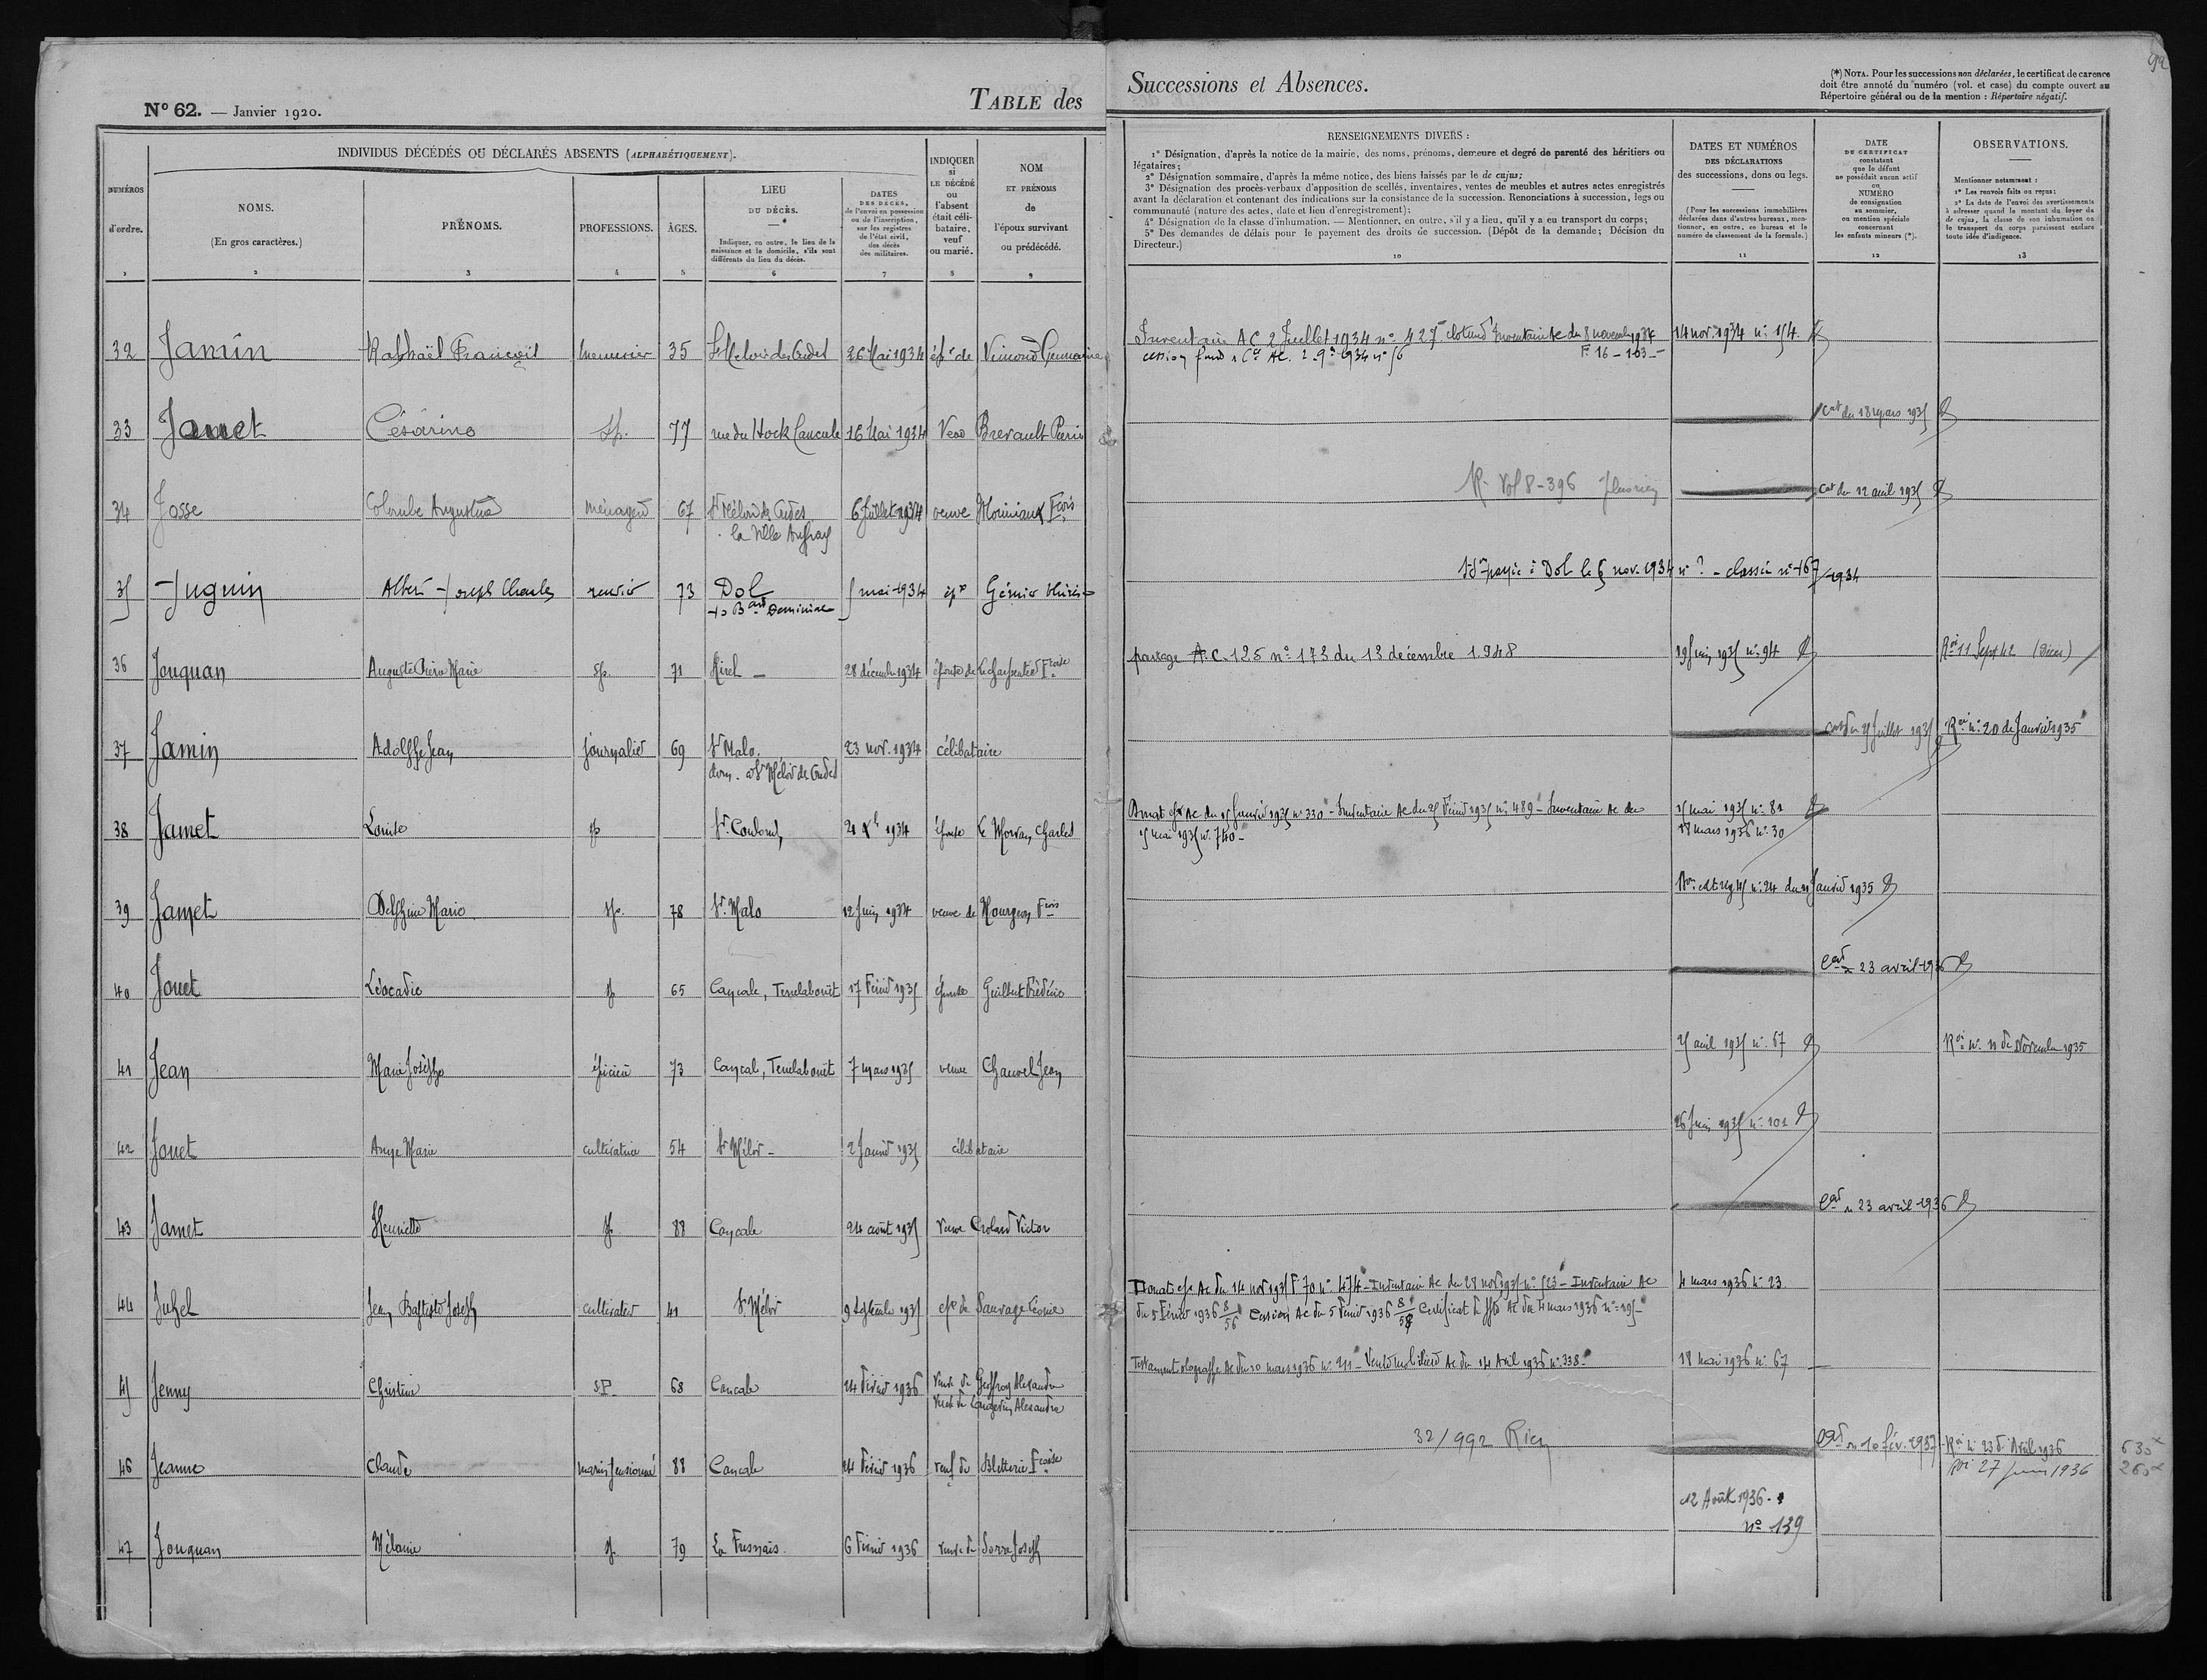 N° 62. — Janvier 1920.
TABLE des
Successions et Absences.
(*) NOTA. Pour les successions non déclarées, le certificat de carence
doit être annoté du numéro (vol. et case) du compte ouvert au
Répertoire général ou de la mention : Répertoire négatif.
92
INDIVIDUS DÉCÉDÉS OU DÉCLARÉS ABSENTS (ALPHABÉTIQUEMENT).
NUMÉROS
d'ordre.
1
NOMS.
(En gros caractères.)
2
PRÉNOMS.
3
PROFESSIONS.
4
ÂGES.
5
LIEU
DU DÉCÈS.
Indiquer, en outre, le lieu de la
naissance et le domicile, s'ils sont
différents du lieu du décès.
6
DATES
DES DÉCÈS,
de l'envoi en possession
ou de l'inscription,
sur les registres
de l'état civil,
des décès
des militaires.
7
INDIQUER
si
LE DÉCÉDÉ
ou
l'absent
était céli-
bataire,
veuf
ou marié.
8
NOM
ET PRÉNOMS
de
l'époux survivant
ou prédécédé.
9
RENSEIGNEMENTS DIVERS :
1° Désignation, d'après la notice de la mairie, des noms, prénoms, demeure et degré de parenté des héritiers ou
légataires;
2° Désignation sommaire, d'après la même notice, des biens laissés par le de cujus;
3° Désignation des procès-verbaux d'apposition de scellés, inventaires, ventes de meubles et autres actes enregistrés
avant la déclaration et contenant des indications sur la consistance de la succession. Renonciations à succession, legs ou
communauté (nature des actes, date et lieu d'enregistrement);
4° Désignation de la classe d'inhumation. — Mentionner, en outre, s'il y a lieu, qu'il y a eu transport du corps;
5° Des demandes de délais pour le payement des droits de succession. (Dépôt de la demande; Décision du
Directeur.)
10
DATES ET NUMÉROS
DES DÉCLARATIONS
des successions, dons ou legs.
(Pour les successions immobilières
déclarées dans d'autres bureaux, men-
tionner, en outre, ce bureau et le
numéro de classement de la formule.)
11
DATE
DU CERTIFICAT
constatant
que le défunt
ne possédait aucun actif
ou
NUMÉRO
de consignation
au sommier,
ou mention spéciale
concernant
les enfants mineurs (*).
12
OBSERVATIONS.
Mentionner notamment :
1° Les renvois faits ou reçus;
2° La date de l'envoi des avertissements
à adresser quand le montant du loyer du
de cujus, la classe de son inhumation ou
le transport du corps paraissent exclure
toute idée d'indigence.
13
32 Jamin Raphaël François menuisier 35 St Meloir des Ondes 26 Mai 1934 épx de Germaine
Inventaire AC 2 Juillet 1934 n° 427 Inventaire Ac du 8 novembre 1934 14 nov. 1934 n° 154
cession fonds AC. 1934 n° 56 F. 16 - 103
33 Jamet Césarine sp. 77 rue du Hock Cancale 16 Mai 1934 Veuve
Cat du 18 mars 1935
34 Josse Colombe Augustine ménagère 67 St Méloir des Ondes 6 Juillet 1934 veuve Fçois
la Ville
R. Vol 8 - 396 Cat du 12 avril 1935
35 Juguin Albert Joseph Charles rentier 73 Dol 5 mai 1934 épx
à Dol le 6 nov. 1934 n° ? - classée n° 167/1934
36 Jouquan Auguste Pierre Marie sp. 71 Hirel 28 décembre 1934 époux de Lecharpentier Fçoise
partage A.C. 125 n° 173 du 13 décembre 1948 19 Juin 1935 n° 94 Roi 11 Sept 42 (Décès)
37 Jamin Adolphe Jean journalier 69 St Malo 23 nov. 1934 célibataire
dom. à St Méloir des Ondes
Juillet 1935 Roi n° 20 de Janvier 1935
38 Jamet Louise sp St Coulomb 1934 épouse Le Morvan Charles
Ac du 15 Janvier 1935 n° 330 - Inventaire Ac du 25 Février 1935 n° 489 - Inventaire Ac du 15 mai 1935 n° 81
15 mai 1935 n° 740 - 17 mars 1936 n° 30
39 Jamet Delphine Marie sp. 78 St Malo 12 Juin 1934 veuve de Hourgeon Fçois
n° 24 du Janvier 1935
40 Jouet Léocadie sp 65 Cancale, Terrelabouët 17 Février 1935 épouse Guilbert Frédéric
23 avril 1936
41 Jean Marie Josèphe épicière 73 Cancale, Terrelabouët 7 mars 1935 veuve Chauvel Jean
25 avril 1935 n° 67 Roi n° 11 de Novembre 1935
42 Jouet Ange Marie cultivatrice 54 St Méloir - 2 Janvier 1935 célibataire
26 Juin 1935 n° 101
43 Jamet Henriette sp 88 Cancale 24 août 1935 veuve Victor
23 avril 1936
44 Juhel Jean Baptiste Joseph cultivateur 41 St Méloir 9 Septembre 1935 épx de Sauvage Léonie
Ac du 14 nov 1935 F 70 n° 474 - Inventaire Ac du 28 nov 1935 n° 523 - Inventaire Ac 4 mars 1936 n° 23
du 5 Février 1936 8/56 Cession Ac du 5 Février 1936 8/58 Certificat de Ac du 4 mars 1936 n° 195
45 Jenny Christine SP 68 Cancale 24 Février 1936 veuve de Geoffroy Alexandre
veuve de Langevin Alexandre
Testament olographe Ac du 10 mars 1936 n° 211 - Vente mobilière Ac du 14 Avril 1936 n° 338 18 mai 1936 n° 67
46 Jeanne Claude marin pensionné 88 Cancale 24 Février 1936 veuf de Fçoise
32/992 Rien 10 fév. 1937 Roi n° 23 d'Avril 1936
Roi 27 Juin 1936
630
260
47 Jouquan Mélanie sp 79 La Fresnais 6 Février 1936 veuve de Joseph
12 Août 1936
n° 139